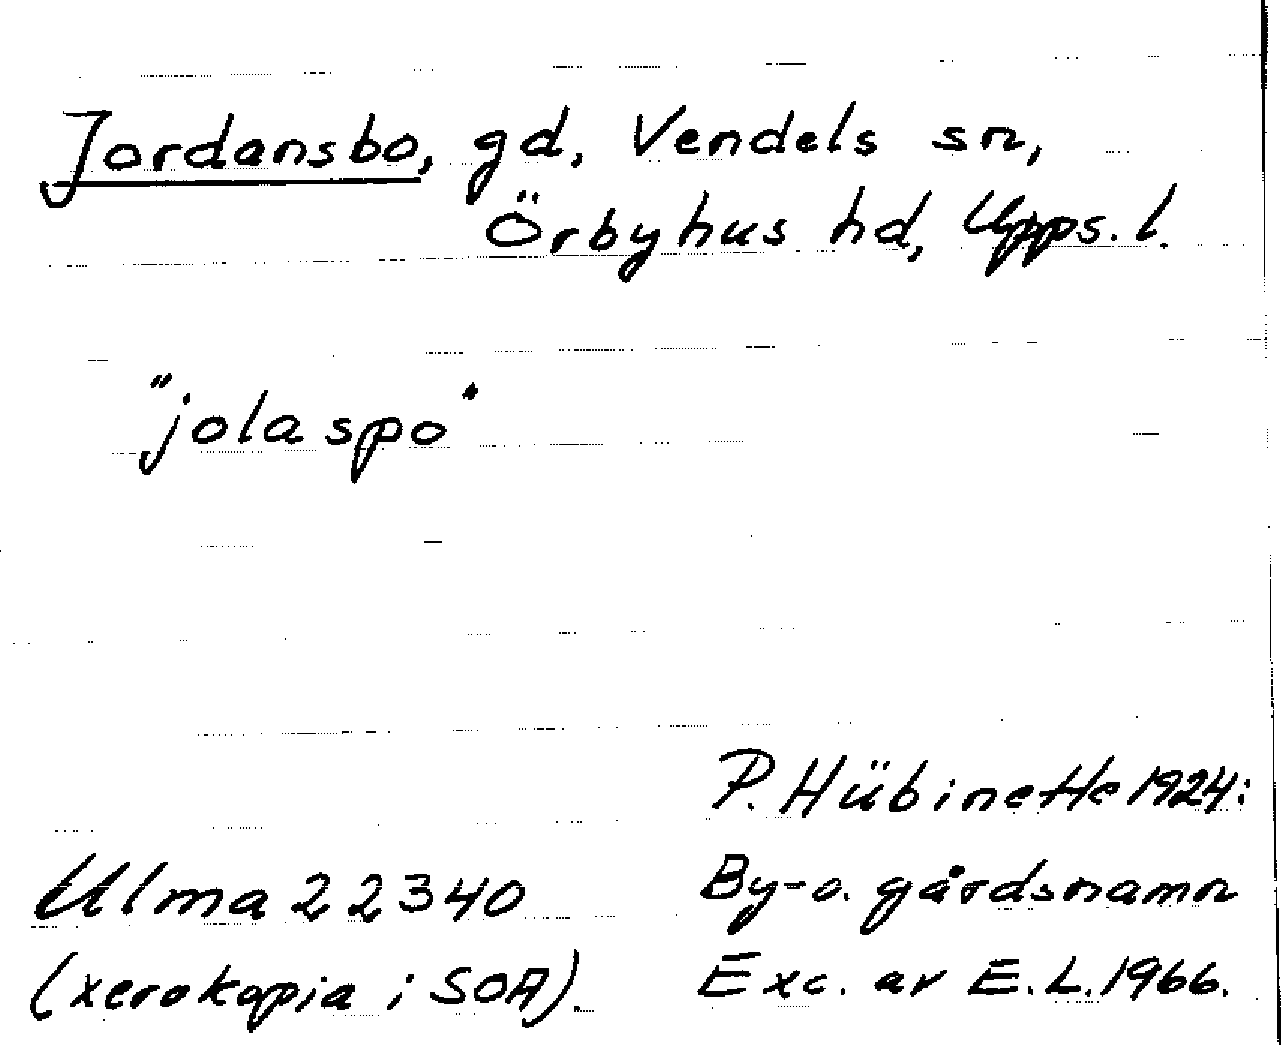 Jordansbo, gd, Vendels sn,
Örbyhus hd, Upps. l.
"jolaspo"
P. Hübinette 1924:
Ulma 22340
By- o. gårdsnamn
(xerokopia i SOA).
Exc. av E.L. 1966.